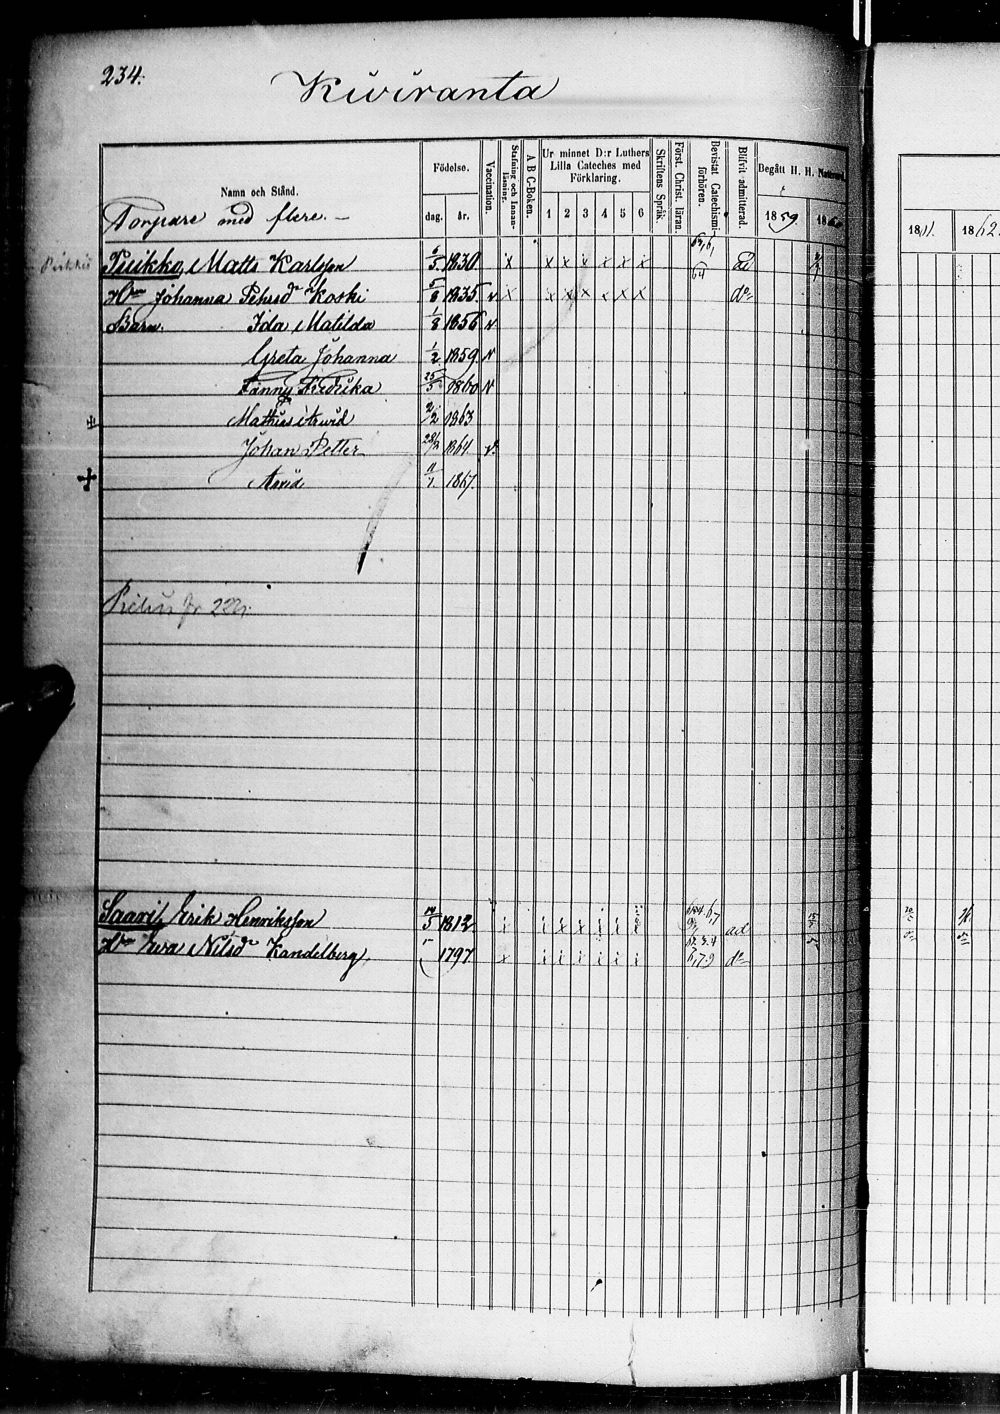 234.
Kiviranta
Namn och Stånd.
Födelse.
dag. år.
Vaccination.
Stafning och Innanläsning.
A B C-Boken.
Ur minnet D:r Luthers Lilla Cateches med Förklaring.
1 2 3 4 5 6
Skriftens Språk.
Först. Christ. läran.
Bevistat Catechismiförhören.
Blifvit admitterad.
Begått H. H. Nattvard.
1859 1860
1861. 1862
Torpare med flere. –
Matts Karlsson 1830 x x x x x x x
Hn Johanna Pehrsdr Koski 5/8 1835. v x x x x x x x do
Barn. Ida Matilda 1/8 1856 v
Greta Johanna 1/2 1859 v
Fanny Fredrika 25/5 1860 v
Mathias Arvid 2/2 1863
Johan Petter 1864. v.
Arvid 1867.
Saari, Erik Henriksson 1812 i i x x i i i ad
Hn Eva Nilsdr Kandelberg, 1797 x i i i i i i do